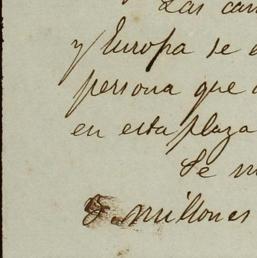 Las can
y Europa se e
persona que
en esta plaza
Se m
5. millones